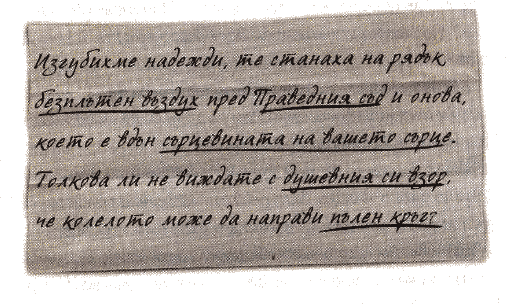 Изгубихме надежди, те станаха на рядък,
безплътен въздух пред Праведния съд и онова,
което е вдън сърцевината на вашето сърце.
Толкова ли не виждате с душевния си взор,
че колелото може да направи пълен кръг?